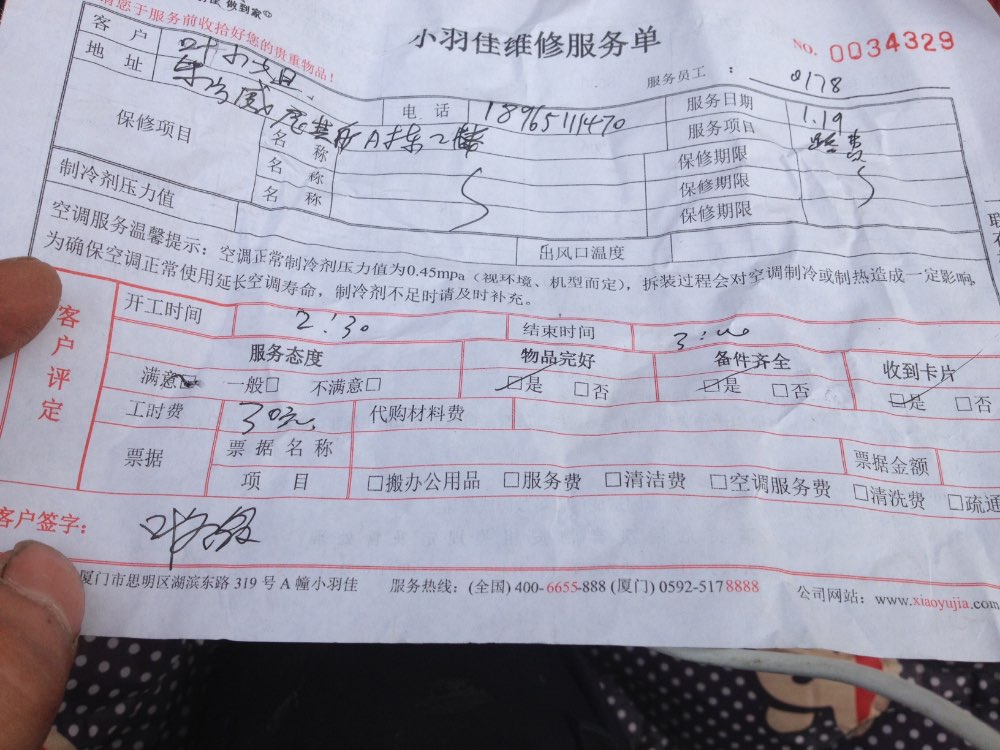 做到家
请您于服务前收拾好您的贵重物品！
小羽佳维修服务单
NO. 0034329
服务员工： 0178
客户 叶小姐
电话 18965111470
服务日期 1.19
地址 A栋2楼
服务项目
保修项目 名称 保修期限
名称 保修期限
名称 保修期限
制冷剂压力值
出风口温度
空调服务温馨提示：空调正常制冷剂压力值为0.45mpa（视环境、机型而定），拆装过程会对空调制冷或制热造成一定影响，
为确保空调正常使用延长空调寿命，制冷剂不足时请及时补充。
客户评定
开工时间 2:30 结束时间 3:00
服务态度 物品完好 备件齐全 收到卡片
满意□ 一般□ 不满意□ □是 □否 □是 □否 □是 □否
工时费 30元 代购材料费
票据 票据名称 票据金额
项目 □搬办公用品 □服务费 □清洁费 □空调服务费 □清洗费 □疏通
客户签字：
厦门市思明区湖滨东路 319 号 A 幢小羽佳 服务热线：(全国) 400-6655-888 (厦门) 0592-5178888 公司网站：www.xiaoyujia.com